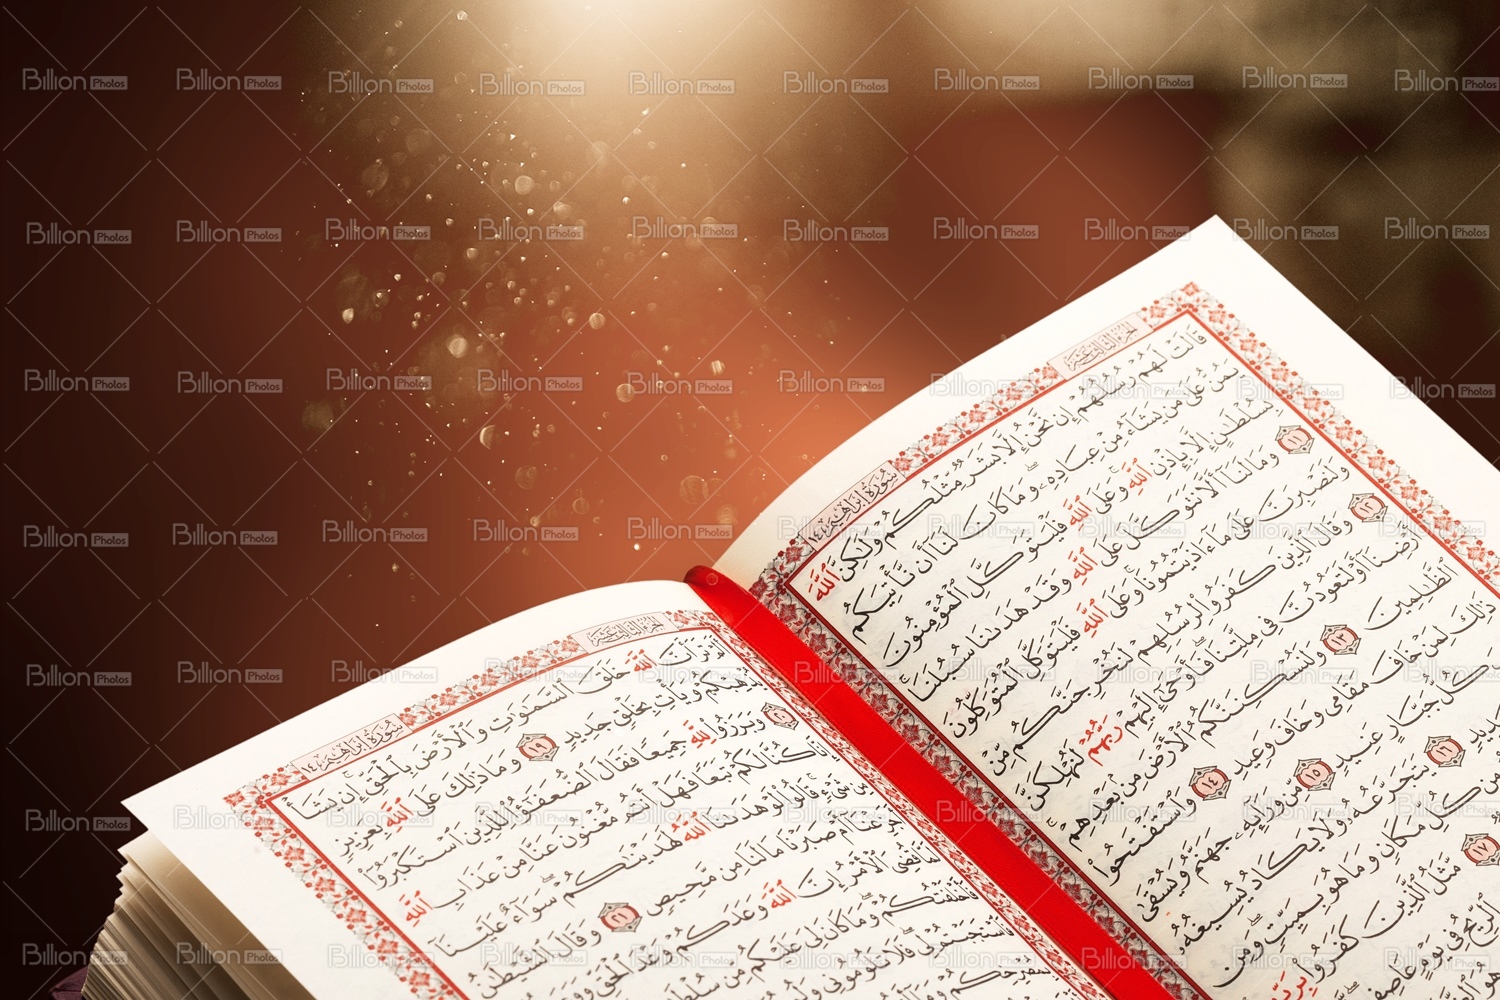 الجزء الثالث عشر
سورة إبراهيم ١٤
قَالَتْ لَهُمْ رُسُلُهُمْ إِن نَّحْنُ إِلَّا بَشَرٌ مِّثْلُكُمْ وَلَٰكِنَّ ٱللَّهَ
يَمُنُّ عَلَىٰ مَن يَشَآءُ مِنْ عِبَادِهِۦ وَمَا كَانَ لَنَآ أَن نَّأْتِيَكُم
بِسُلْطَٰنٍ إِلَّا بِإِذْنِ ٱللَّهِ وَعَلَى ٱللَّهِ فَلْيَتَوَكَّلِ ٱلْمُؤْمِنُونَ
١١ وَمَا لَنَآ أَلَّا نَتَوَكَّلَ عَلَى ٱللَّهِ وَقَدْ هَدَىٰنَا سُبُلَنَا
وَلَنَصْبِرَنَّ عَلَىٰ مَآ ءَاذَيْتُمُونَا وَعَلَى ٱللَّهِ فَلْيَتَوَكَّلِ ٱلْمُتَوَكِّلُونَ
١٢ وَقَالَ ٱلَّذِينَ كَفَرُوا۟ لِرُسُلِهِمْ لَنُخْرِجَنَّكُم مِّنْ
أَرْضِنَآ أَوْ لَتَعُودُنَّ فِى مِلَّتِنَا فَأَوْحَىٰٓ إِلَيْهِمْ رَبُّهُمْ لَنُهْلِكَنَّ
ٱلظَّٰلِمِينَ ١٣ وَلَنُسْكِنَنَّكُمُ ٱلْأَرْضَ مِنۢ بَعْدِهِمْ
ذَٰلِكَ لِمَنْ خَافَ مَقَامِى وَخَافَ وَعِيدِ ١٤ وَٱسْتَفْتَحُوا۟
كُلُّ جَبَّارٍ عَنِيدٍ ١٥ مِّن وَرَآئِهِۦ جَهَنَّمُ وَيُسْقَىٰ
١٦ يَتَجَرَّعُهُۥ وَلَا يَكَادُ يُسِيغُهُۥ
مِن كُلِّ مَكَانٍ وَمَا هُوَ بِمَيِّتٍ وَمِن
١٧ مَّثَلُ ٱلَّذِينَ كَفَرُوا۟
ٱلرِّيحُ فِى يَوْمٍ عَاصِفٍ
الجزء الثالث عشر
سورة إبراهيم ١٤
أَلَمْ تَرَ أَنَّ ٱللَّهَ خَلَقَ ٱلسَّمَٰوَٰتِ وَٱلْأَرْضَ بِٱلْحَقِّ إِن يَشَأْ
يُذْهِبْكُمْ وَيَأْتِ بِخَلْقٍ جَدِيدٍ ١٩ وَمَا ذَٰلِكَ عَلَى ٱللَّهِ بِعَزِيزٍ
٢٠ وَبَرَزُوا۟ لِلَّهِ جَمِيعًا فَقَالَ ٱلضُّعَفَٰٓؤُا۟ لِلَّذِينَ ٱسْتَكْبَرُوٓا۟
إِنَّا كُنَّا لَكُمْ تَبَعًا فَهَلْ أَنتُم مُّغْنُونَ عَنَّا مِنْ عَذَابِ ٱللَّهِ
مِن شَىْءٍ قَالُوا۟ لَوْ هَدَىٰنَا ٱللَّهُ لَهَدَيْنَٰكُمْ سَوَآءٌ عَلَيْنَآ
أَمْ صَبَرْنَا مَا لَنَا مِن مَّحِيصٍ ٢١ وَقَالَ ٱلشَّيْطَٰنُ
لَمَّا قُضِىَ ٱلْأَمْرُ إِنَّ ٱللَّهَ وَعَدَكُمْ وَعْدَ ٱلْحَقِّ
فَأَخْلَفْتُكُمْ وَمَا كَانَ لِىَ عَلَيْكُم مِّن سُلْطَٰنٍ
فَٱسْتَجَبْتُمْ لِى فَلَا تَلُومُونِى
بِمُصْرِخِكُمْ وَمَآ
Billion Photos